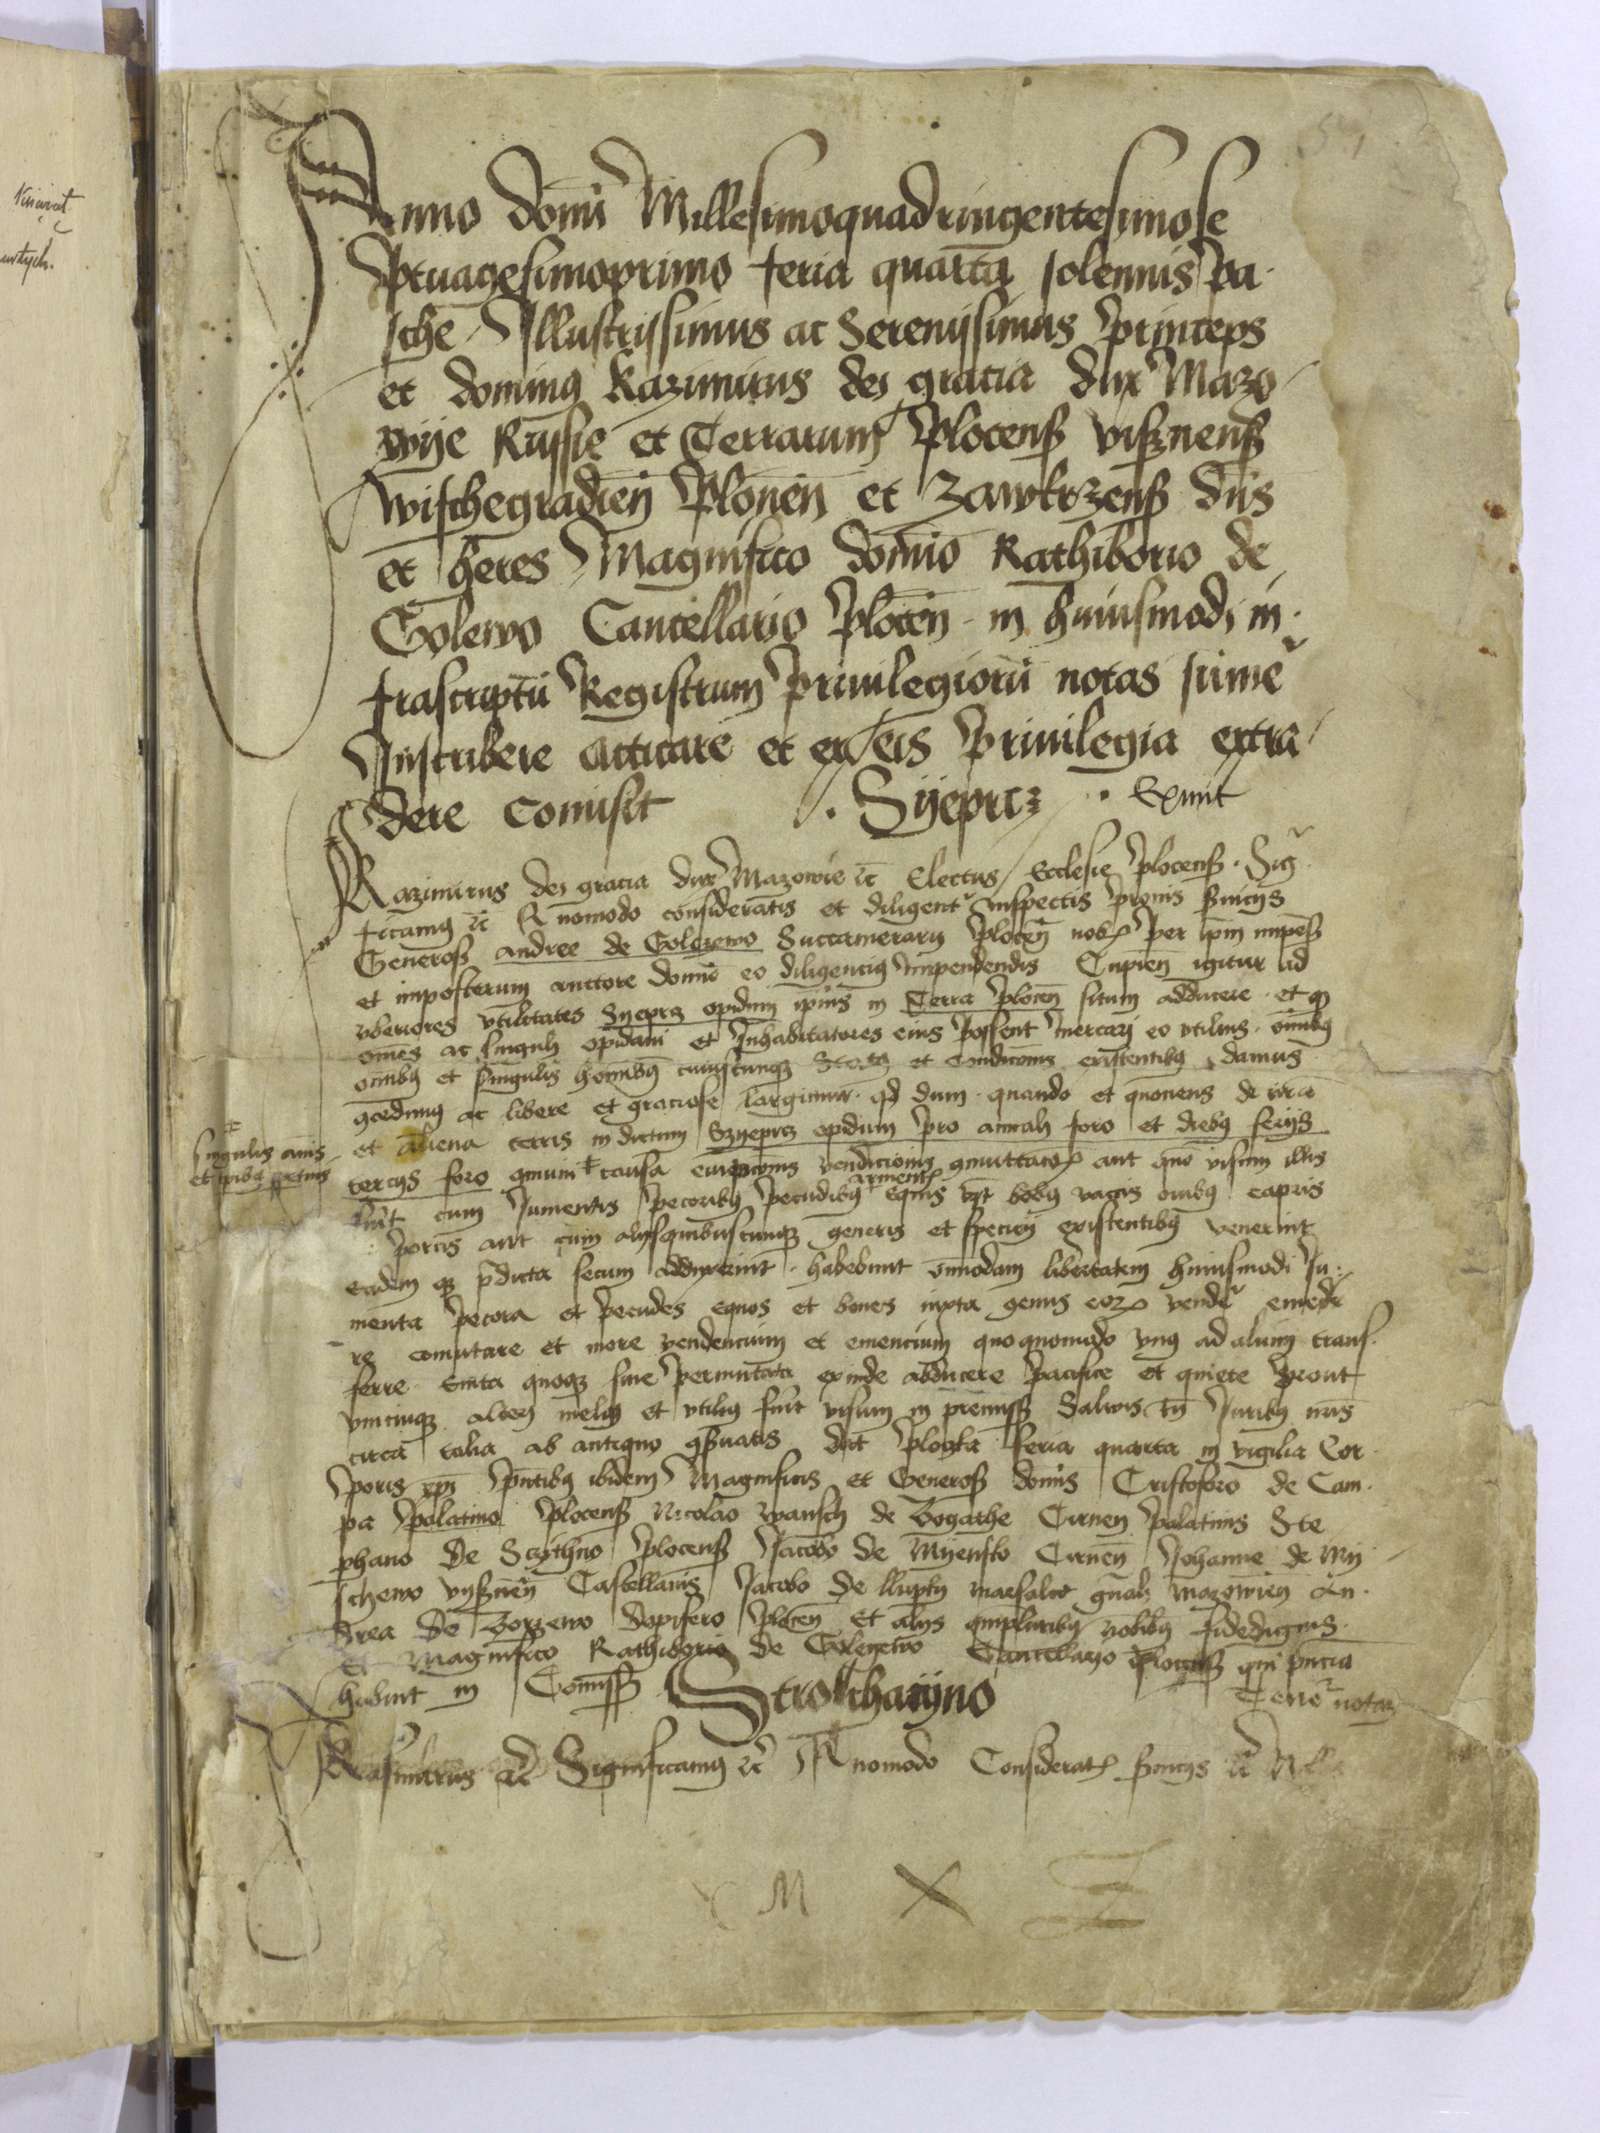 Kniaiat
Anno Domi Millesimoquadringentesimose
ptuagesimoprimo feria quarta solennis Pa
sche Illustrissimus ac Serenissimus princeps
et dominus Kazimirus dei gracia dux Mazo
wije Russie et Terrarum Plocenß vißnenß
wischegradien Plonen et Zawkrzenß dns
et heres Magnifico domino Rathiborio de
Golewo Cancellario plocen in huiusmodi in
frascriptu Registrum privilegioru notas sume
Inscribere Acticare et ex eis Privilegia extra
dere comisit . Syeprcz . Exivit
Kazimirus dei gracia dux Mazowie etc Electus Ecclesie plocenß Sig
ficamus etc Quomodo consideratis et diligent inspectis pronis Serviciis
Generosi andree de Golczewo Succamerarij plocen nobis per ipm impenß
et imposterum auctore domino eo diligencius impendendis Cupien igitur ad
uberiores utilitates Syeprcz opidum ipius in Terra plocen situm adducere et quod
omnes ac singuli opidani et Inhabitatores eius possent mercari eo utilius omnibus
omnibus et singulis hominibus cuiuscunque Status et condicionis existentibus damus
concedimus ac libere et graciose largimur quod dum quando et quociens de nra
et aliena terris in dictum Szyeprcz opidum pro annali foro et diebus feriis
terciis foro communi + causa empcionis vendicionis commuttacionis aut quomodo visum illis
singulis annis
fuerit cum Jumentis pecoribus pecudibus armentis equis videlicet bobus vaccis ovibus capris
porcis aut cum aliis quibuscunque generis et speciei existentibus venerint
eadem que predicta secum adduxerint habebunt omnimodam libertatem huiusmodi Ju
menta pecora et pecudes equos et boves iuxta genus eorum vendere emede
re comutare et more vendencium et emencium quoquomodo unus ad alium trans
ferre Emta quoque sive permutata exinde abducere pacifice et quiete prout
unicuique alteri melius et utilius fuerit visum in premissis Salvis tamen Juribus nris
circa talia ab antiquo conservatis Dat Ploczka feria quarta in vigilia Cor
poris xpi presentibus ibidem Magnificis et Generosis dominis Cristoforo de Cam
pa palatino plocenß Nicolao wansch de Bogathe Cirnen palatinis Ste
phano de Sczythno plocenß Jacobo de Myensko Cirnen Johanne de My
schewo vyßnen Castellanis Jacobo de llupky marsalco gnali mazowien An
drea de Borzewo dapifero plocen Et aliis quampluribus nobilibus fidedignis
Et Magnifico Rathiborio de Golczewo Cancellario plocenß qui presencia
habuit in Commisß Strolchayno Tenor notar
Kasimirus etc Significamus etc Quomodo Consideratis serviciis etc
M X